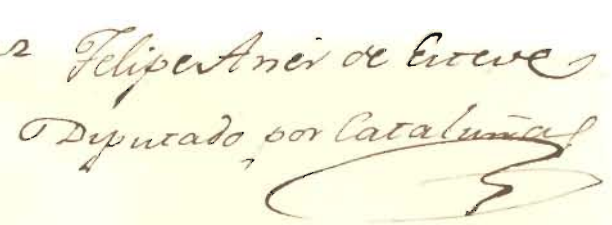 Felipe Aner de Esteve
Diputado por Cataluña